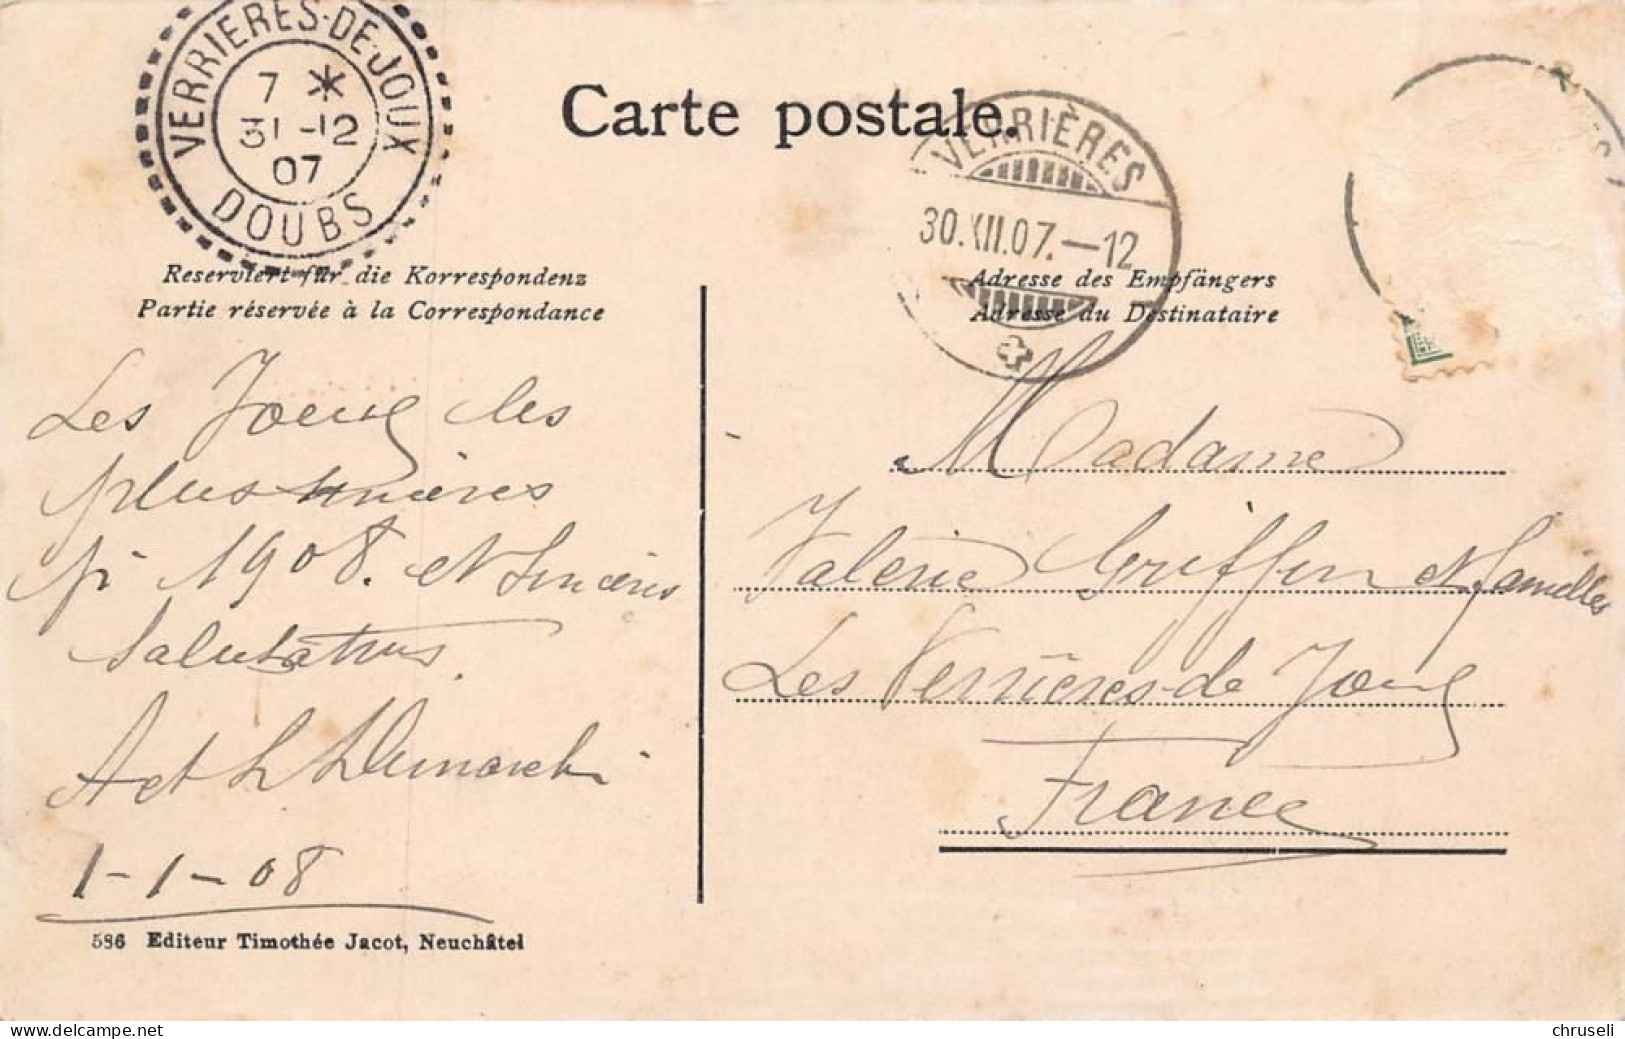 VERRIERES-DE-JOUX
7 *
31-12
07
DOUBS
Carte postale.
VERRIÈRES
30.XII.07.—12
Reserviert für die Korrespondenz
Partie réservée à la Correspondance
Adresse des Empfängers
Adresse du Destinataire
Les Voeux les
plus sincères
pr 1908. et Sincères
Salutations
1-1-08
586 Editeur Timothée Jacot, Neuchâtel
Madame
Valérie Griffon et familles
Les Verrières-de Joux
France
chruseli
delcampe.net